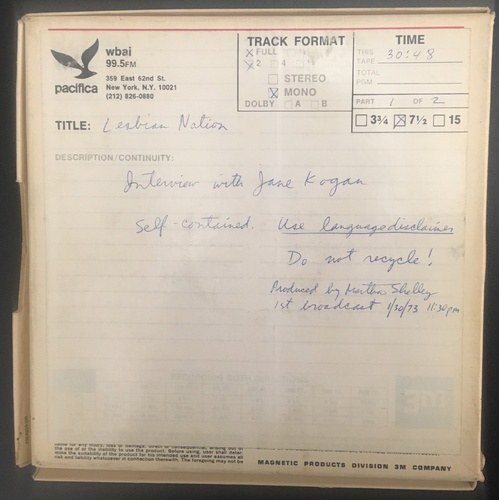 wbai
99.5FM
359 East 62nd St.
New York, N.Y. 10021
(212) 826-0880
pacifica
TRACK FORMAT
FULL
2 4
STEREO
MONO
DOLBY A B
TIME
THIS TAPE 30:48
TOTAL PGM
PART 1 OF 2
3¾ 7½ 15
TITLE: Lesbian Nation
DESCRIPTION/CONTINUITY:
Interview with Jane Kogan
Self-contained. Use language disclaimer
Do not recycle!
Produced by Martha Shelley
1st broadcast 1/30/73 11:30pm
the use of or the inability to use the product. Before using, user shall deter-
mine the suitability of the product for his intended use and user assumes all
risk and liability whatsoever in connection therewith. The foregoing may not be
MAGNETIC PRODUCTS DIVISION 3M COMPANY